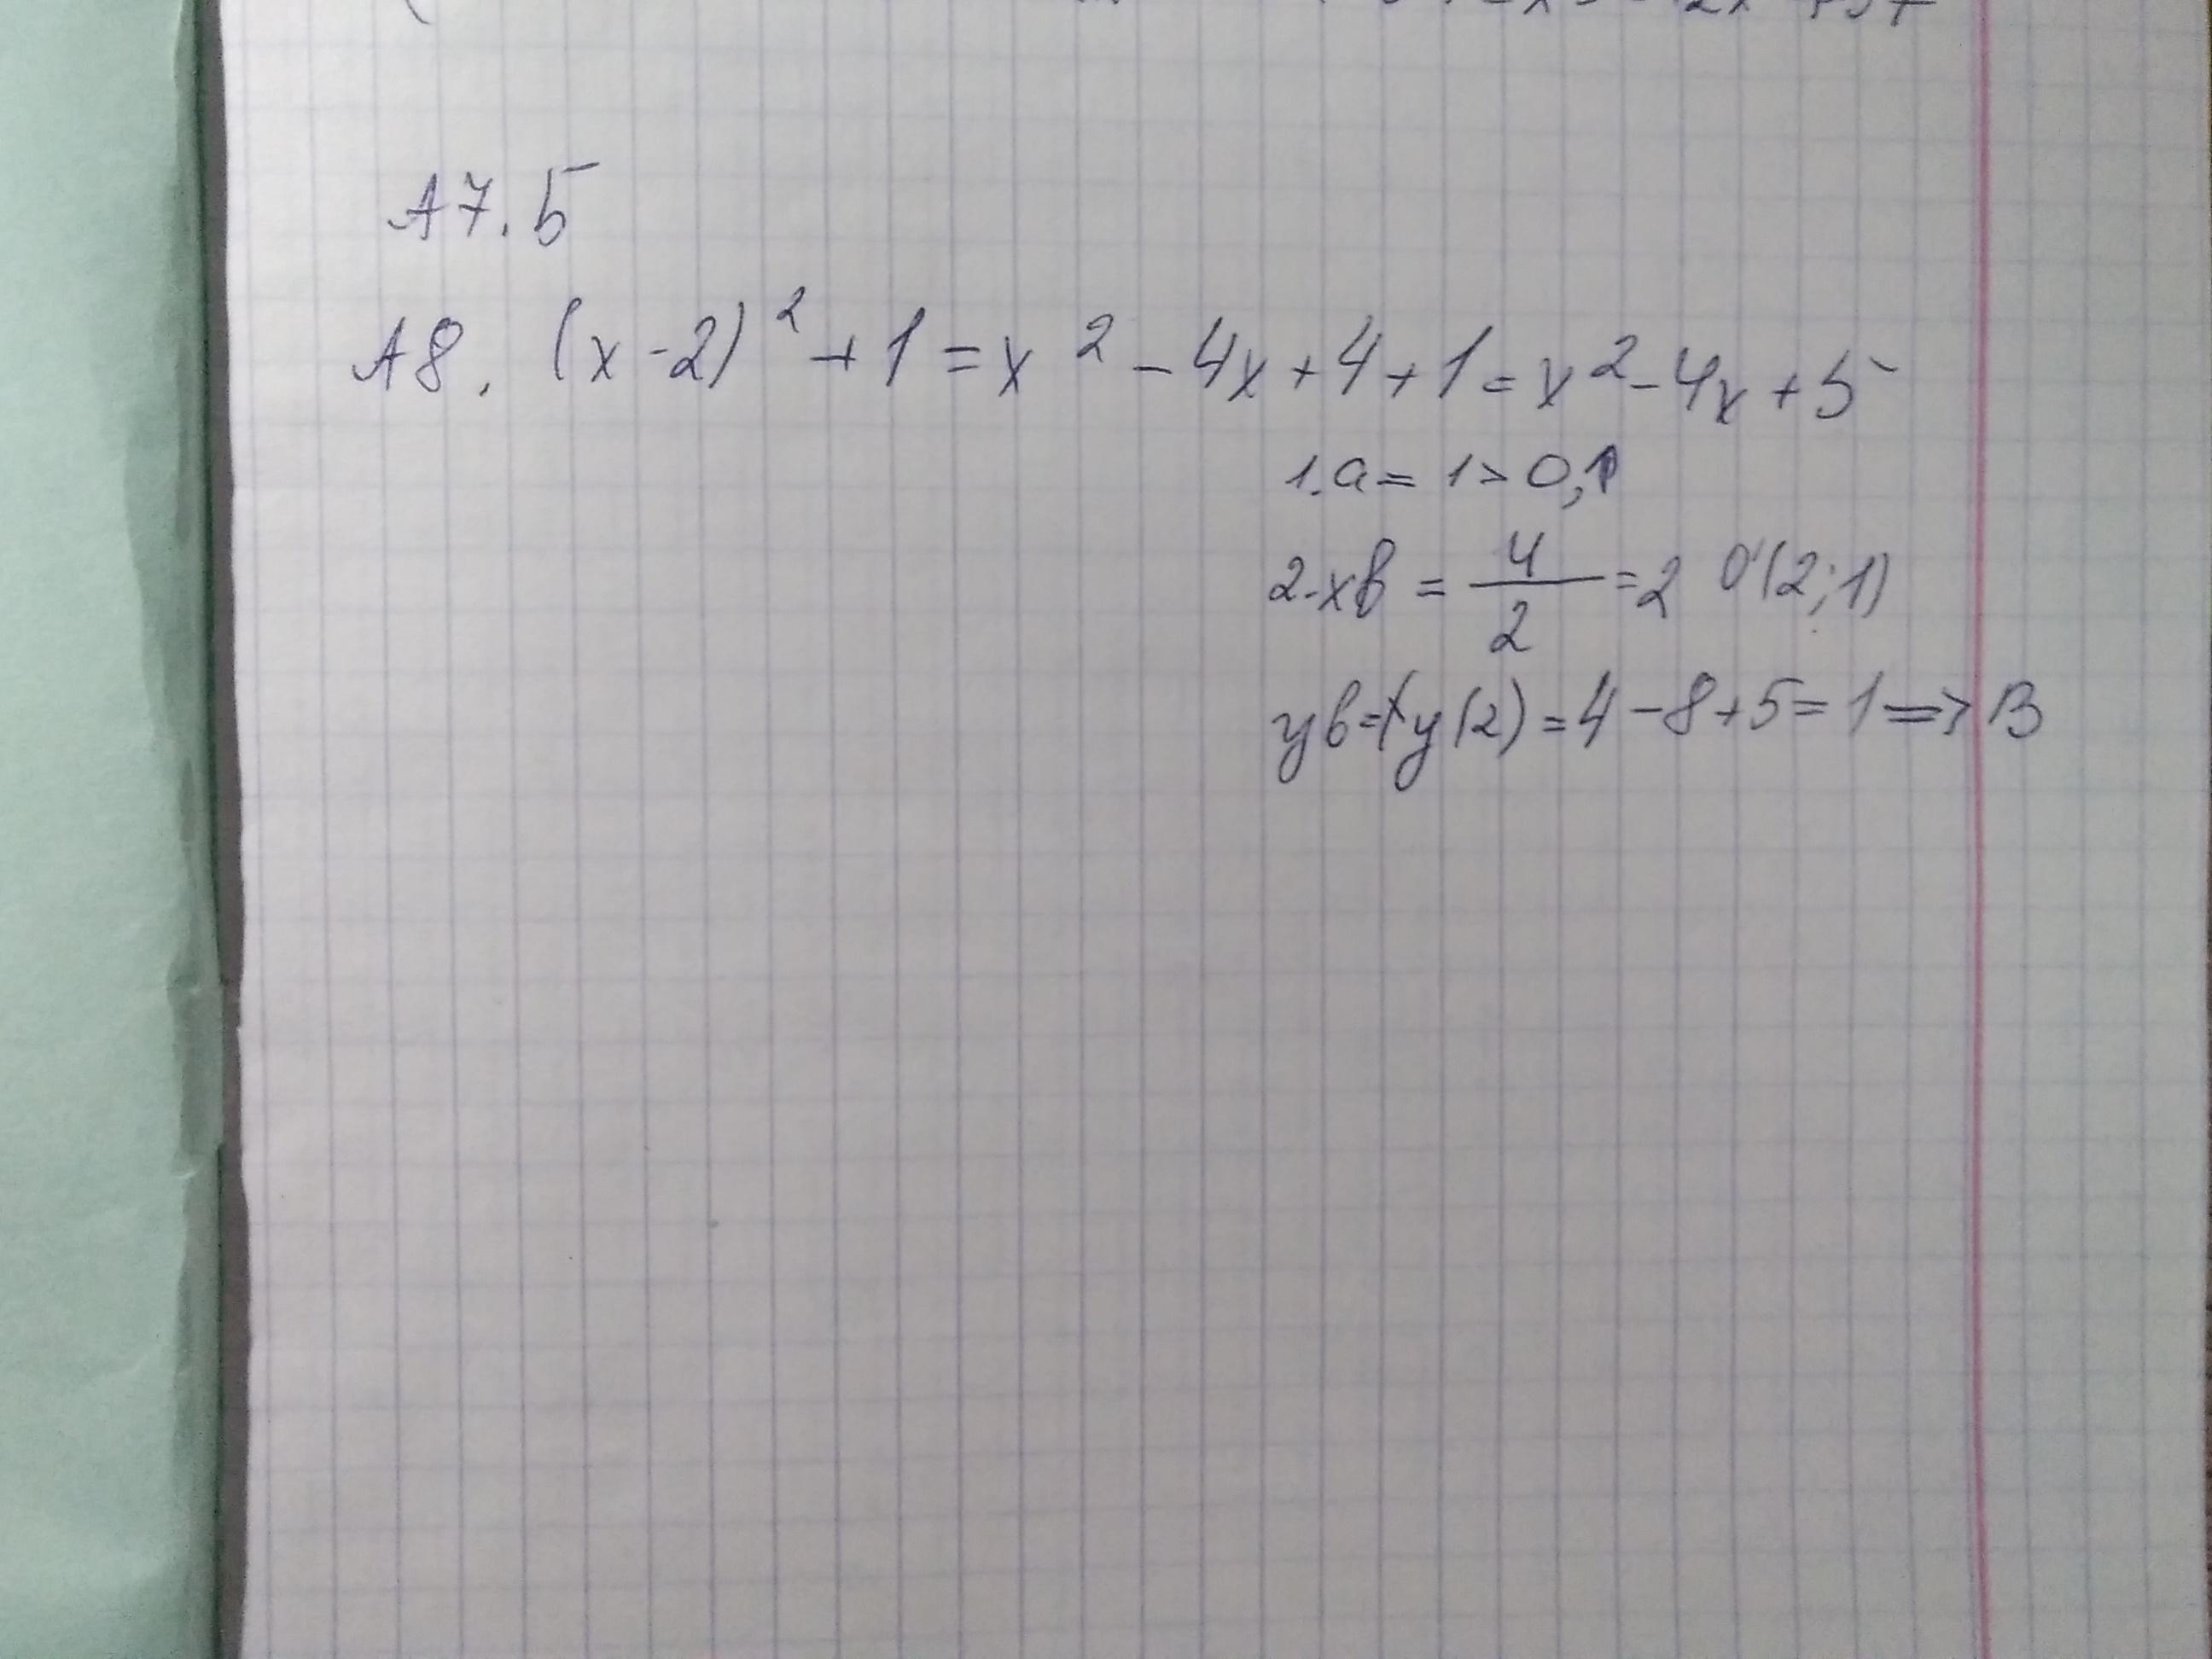 A7. Б
A8. (x-2)² + 1 = x² - 4x + 4 + 1 = x² - 4x + 5
1. a = 1 > 0,
2. xв = 4/2 = 2 O'(2;1)
yв = y(2) = 4 - 8 + 5 = 1 => В